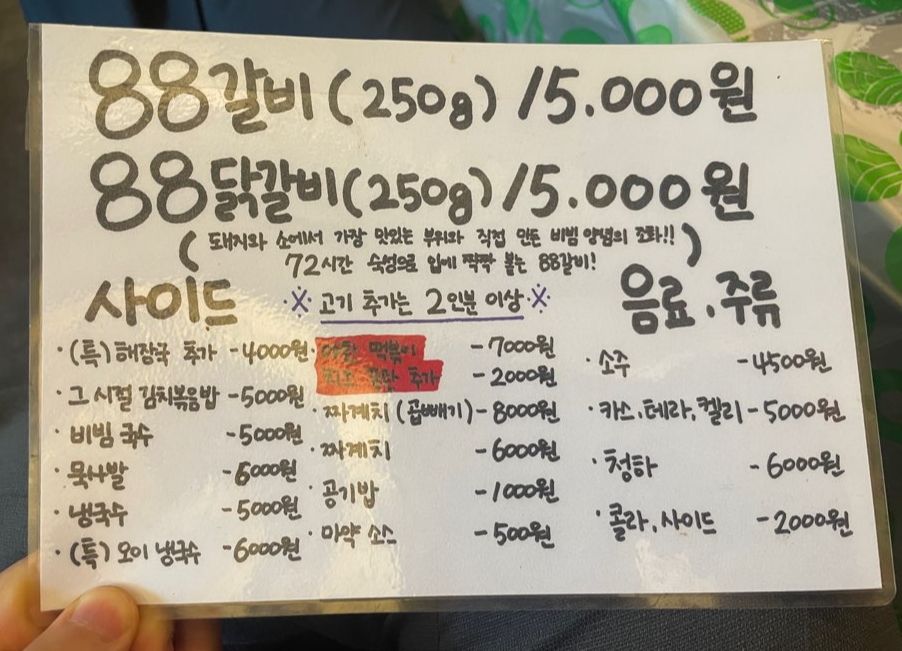 88갈비(250g)/15.000원
88닭갈비(250g)/15.000원
(돼지와 소에서 가장 맛있는 부위와 직접 만든 비빔 양념의 조화!!
72시간 숙성으로 입에 짝짝 붙는 88갈비!)
※고기 추가는 2인분 이상※
사이드
·(특)해장국 추가 -4000원
·그시절 김치볶음밥 -5000원
·비빔 국수 -5000원
·묵사발 -6000원
·냉국수 -5000원
·(특)오이 냉국수 -6000원
· 떡볶이 -7000원
추가 -2000원
·짜계치(곱빼기)-8000원
·짜계치 -6000원
·공기밥 -1000원
·마약 소스 -500원
음료.주류
·소주 -4500원
·카스.테라.켈리-5000원
·청하 -6000원
·콜라.사이드 -2000원